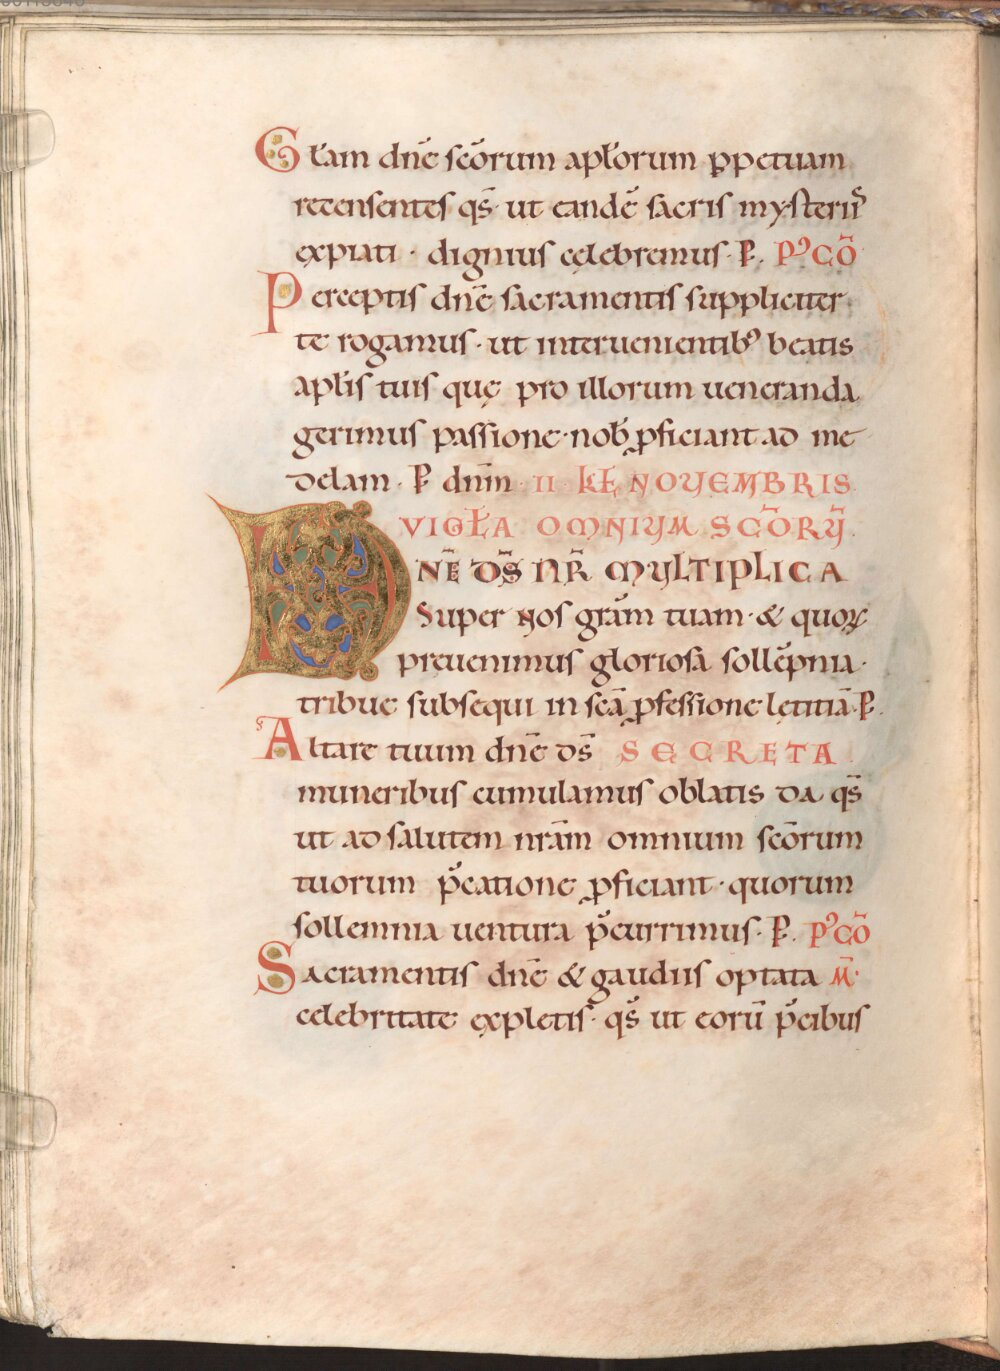 Gƚam dnē scōrum apƚorum ꝑpetuam
recensentes qs̄ · ut eandē sacris mysterıı᷒
expiati · dignius celebremus · P̱. Pꝰ CŌ
Perceptis dnē sacramentis suppliciter
te rogamus · ut interuenientibꝰ beatis
apƚis tuis quę pro illorum ueneranda
gerimus passione · nob̄ ꝓficiant ad me
delam · P̱ dnm̄ · II · Kƚ NOUEMBRIS
VIGƚA OMNIUM SCŌRŪ
DNĒ DS̄ NR̄ MULTIPLICA
Super nos grām tuam · & quoꝝ
preuenimus gloriosā sollēpnia ·
tribue subsequi in scā ꝓfessione letitiā · P̱.
Altare tuum dnē ds̄ SECRETA
muneribus cumulamus oblatis da qs̄
ut ad salutem nrām omnium scōrum
tuorum p̄catione ꝓficiant · quorum
sollemnia uentura p̄currimus · P̱. Pꝰ CŌ
Sacramentis dnē & gaudiis optata M̄ ·
celebritate expletis · qs̄ ut eorū p̄cibus